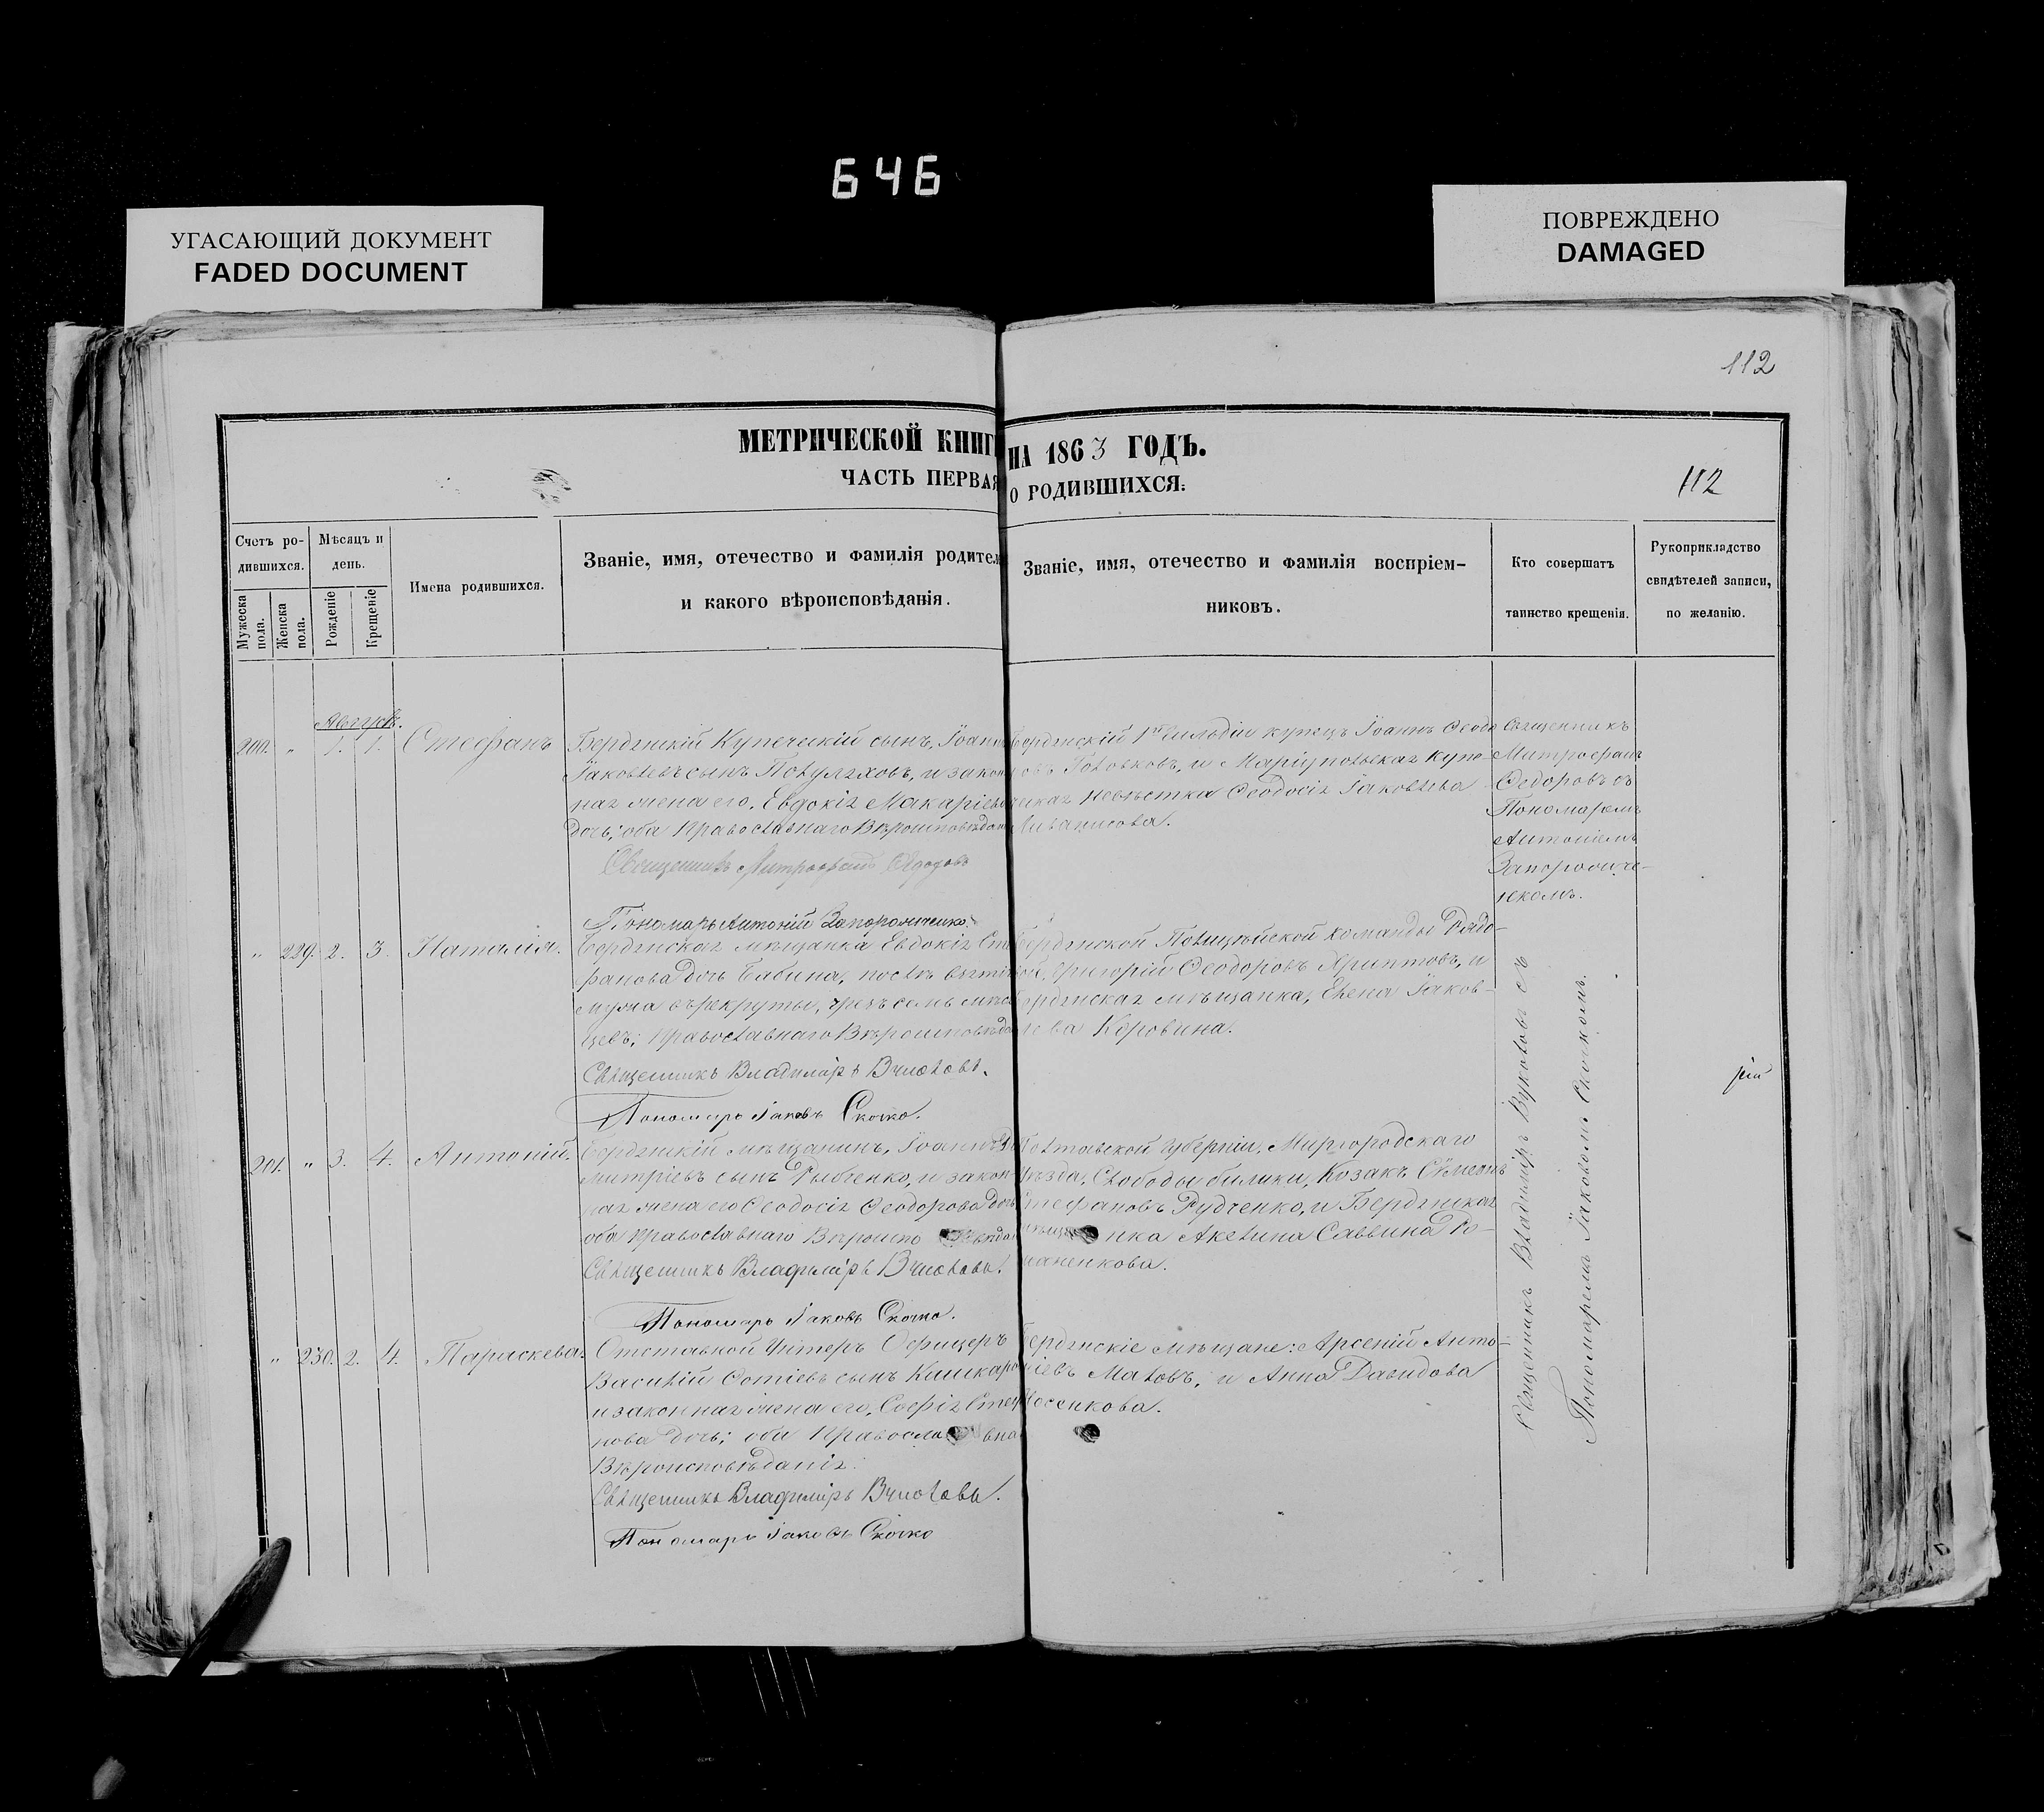 646
УГАСАЮЩИЙ ДОКУМЕНТ
FADED DOCUMENT
ПОВРЕЖДЕНО
DAMAGED
112
МЕТРИЧЕСКОЙ КНИГ
НА 1863 ГОДЪ.
ЧАСТЬ ПЕРВАЯ
О РОДИВШИХСЯ.
112
Счетъ ро-
дившихся.
Мужеска пола.
Женска пола.
Мѣсяцъ и
день.
Рожденіе
Крещеніе
Имена родившихся.
Званіе, имя, отечество и фамилія родител
и какого вѣроисповѣданія.
Званіе, имя, отечество и фамилія воспріем-
никовъ.
Кто совершатъ
таинство крещенія.
Рукоприкладство
свидѣтелей записи,
по желанію.
Август.
200. " 1. 1. Стефанъ
Бердянскій Купеческій сынъ, Іоанн
Іаковлевъ сынъ, и закон
ная жена его, Евдокія Макаріев
дочь; оба Православнаго Вѣроисповѣдан
Священникъ Митрофанъ Ѳедоровъ
Пономарь Антоній Запорожченко.
Бердянскій 1й Гильдіи купецъ Іоаннъ Ѳеодо
Маріупольская купе-
ческая невѣстка Ѳеодосія Іаковлева
Священникъ
Митрофанъ
Ѳедоровъ съ
Пономаремъ
Антоніемъ
Запорожче-
нкомъ.
" 229. 2. 3. Наталія.
Бердянская мѣщанка Евдокія Сте
фанова дочь Бабина, послѣ взятія
мужа въ рекруты, чрезъ семь мѣся
цевъ; Православнаго Вѣроисповѣда
Священникъ Владиміръ
Пономарь Іаковъ Скочко.
Бердянской Полицѣйской команды Рядо-
вой, Григорій Ѳеодоровъ, и
Бердянская мѣщанка, Елена Іаков-
лева Коровина.
201. " 3. 4. Антоній.
Бердянскій мѣщанинъ, Іоаннъ Ди
митріевъ сынъ Рыбченко, и закон-
ная жена его Ѳеодосія Ѳеодорова дочь
оба православнаго Вѣроиспо вѣда
Священникъ Владиміръ
Пономарь Іаковъ Скочко.
Полтавской Губерніи, Миргородскаго
уѣзда, Слободы билики, Козакъ Сѵмеонъ
Стефановъ Рудченко, и Бердянская
мѣща нка Акелина Саввина Ро-
маненкова.
" 230. 2. 4. Параскева.
Отставной Унтеръ Офицеръ
Василій Фотіевъ сынъ Кишкаро
и законная жена его, Софія Стеф
нова дочь; оба Правосла вна
Вѣроисповѣданія.
Священникъ Владиміръ
Пономарь Іаковъ Скочко
Бердянскіе мѣщане: Арсеній Анто-
ніевъ Маловъ, и Анна Давидова
Носенкова.
Священникъ Владиміръ съ
Пономаремъ Іаковомъ Скочкомъ.